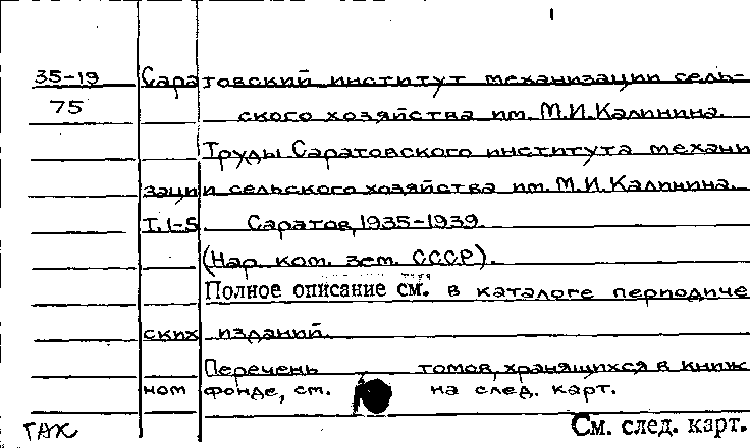 35-19 Саратовский институт механизации сель-
75 ского хозяйства им. М.И.Калинина.
Труды Саратовского института механи
зации сельского хозяйства им. М.И.Калинина.
Т.1-5. Саратов, 1935-1939.
(Нар. ком. зем. СССР).
Полное описание см. в каталоге периодиче
ских изданий.
Перечень томов, хранящихся в книж
ном фонде, см. на след. карт.
ТАХ См. след. карт.